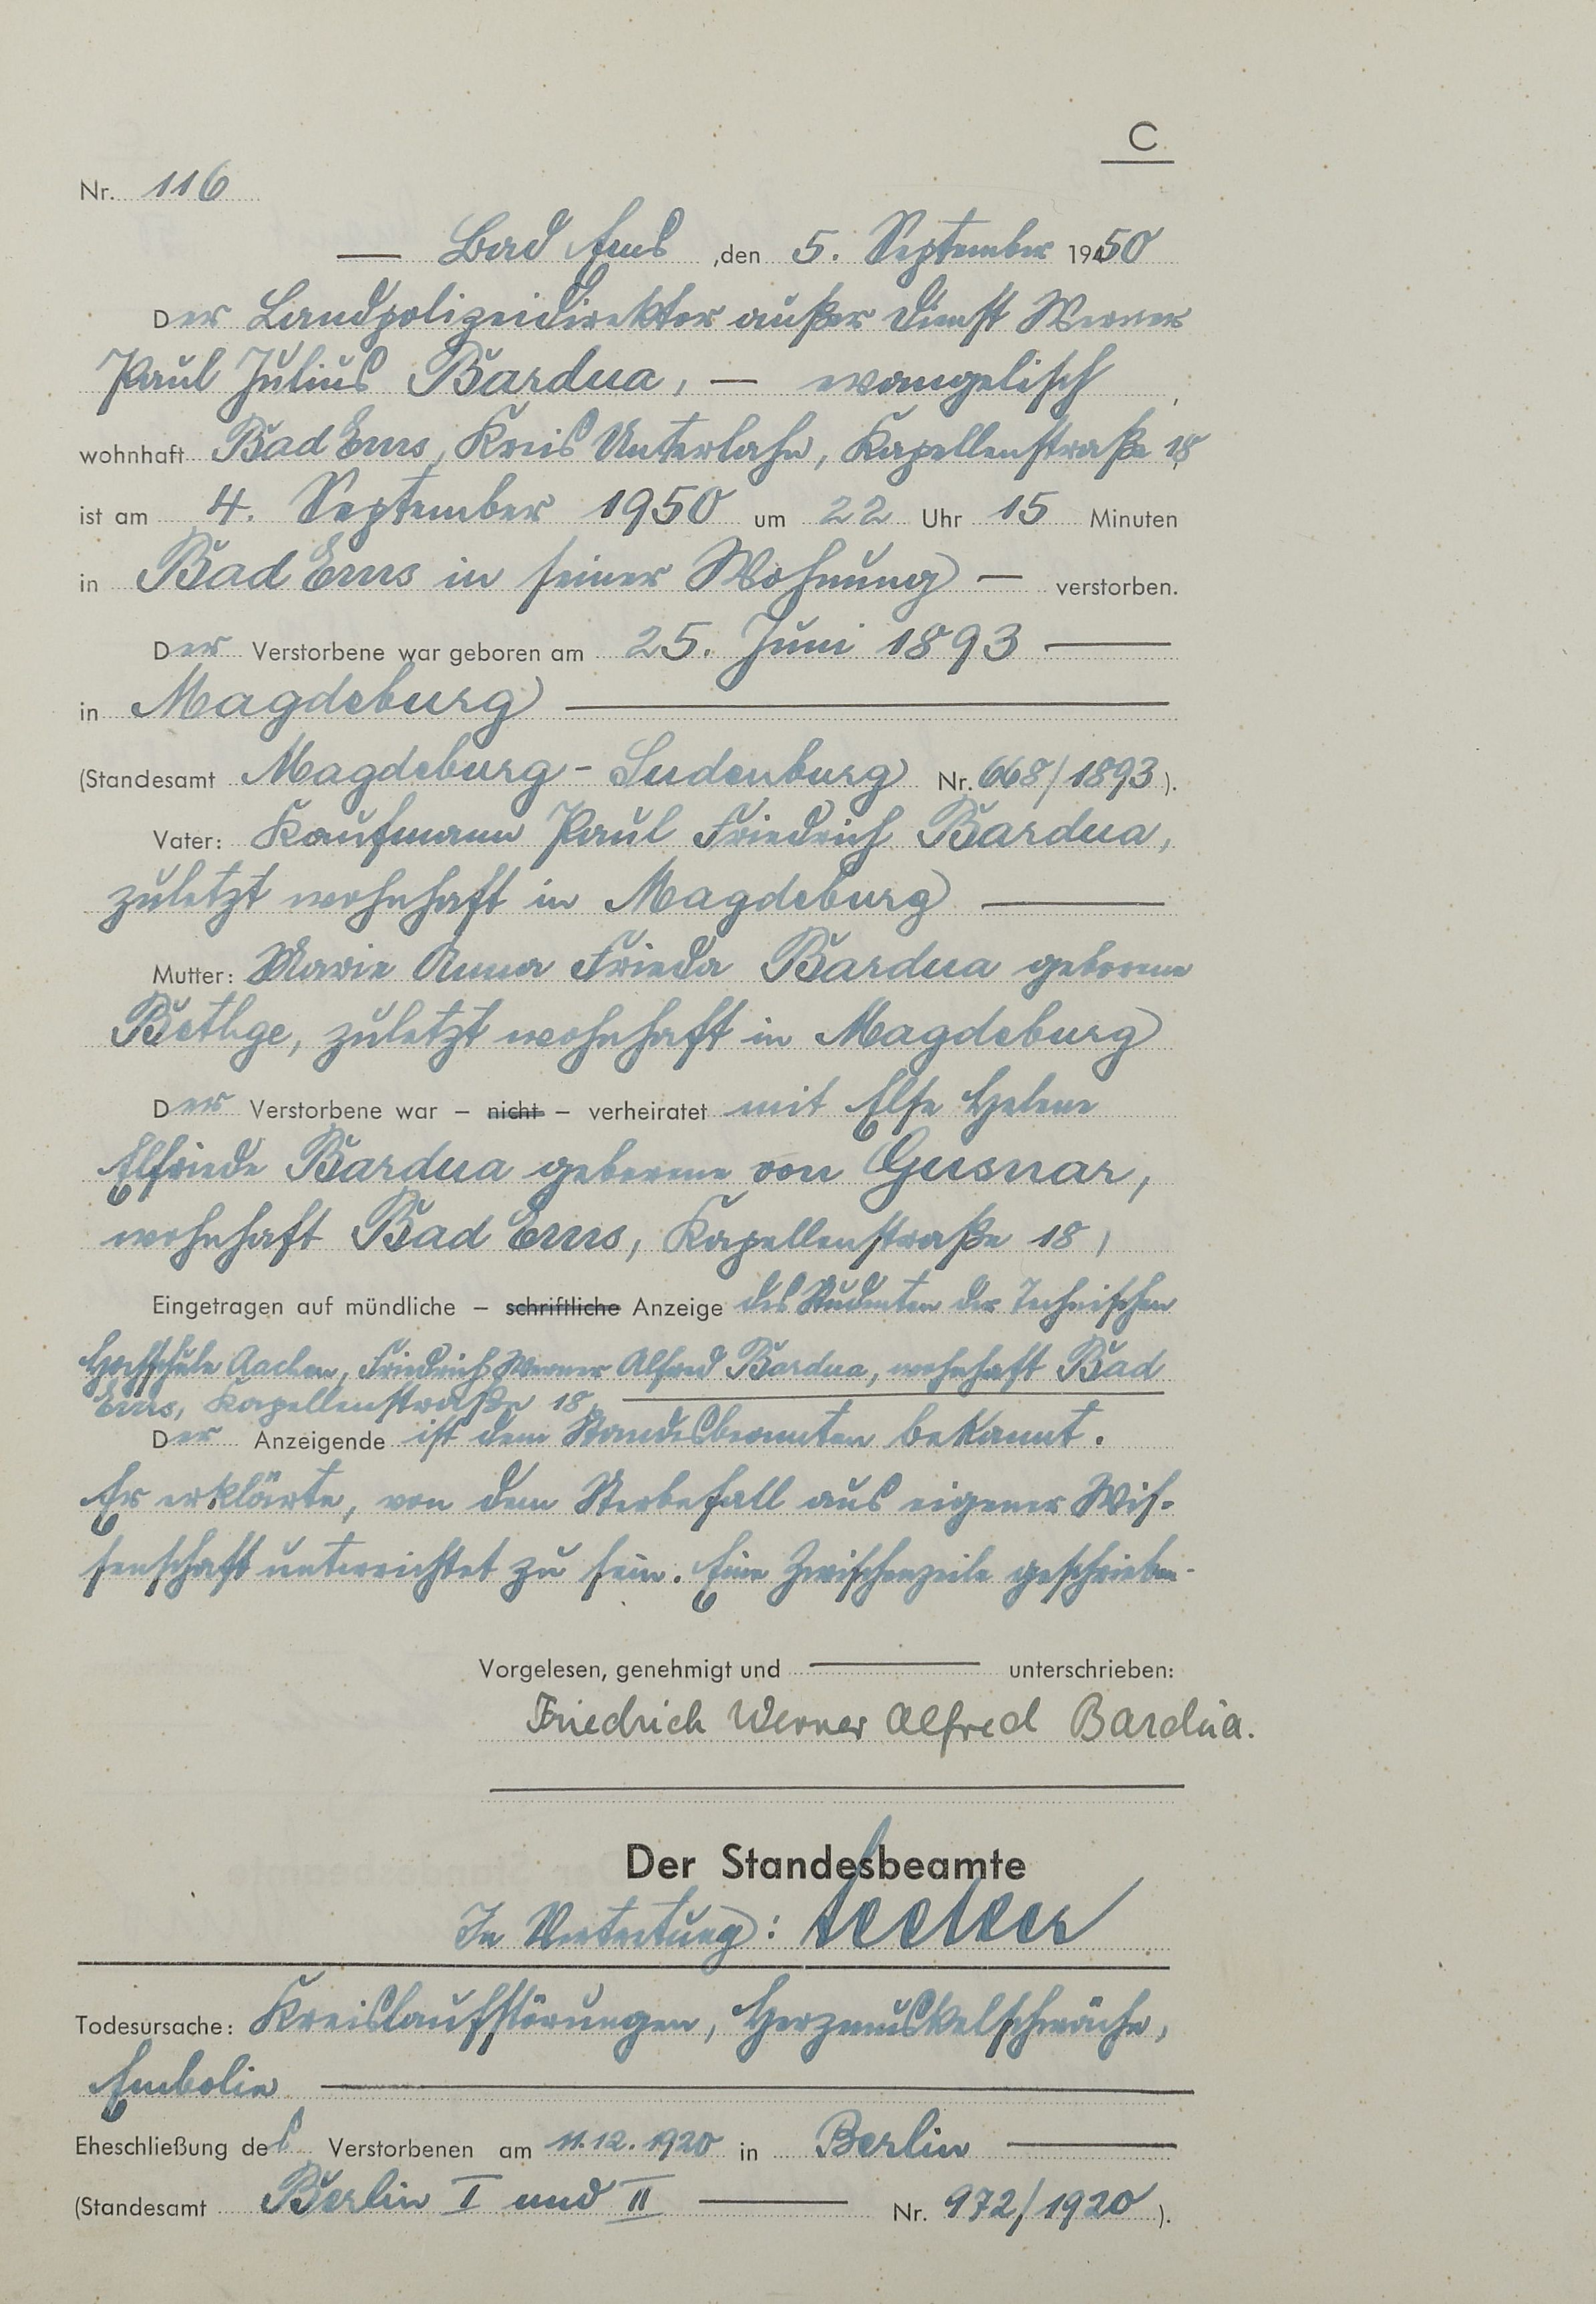 C
Nr. 116
— Bad Ems, den 5. September 1950
Der Landpolizeidirektor außer Dienst Werner
Paul Julius Bardua, — evangelisch,
wohnhaft Bad Ems, Kreis Unterlahn, Kapellenstraße 18
ist am 4. September 1950 um 22 Uhr 15 Minuten
in Bad Ems in seiner Wohnung — verstorben.
Der Verstorbene war geboren am 25. Juni 1893 —
in Magdeburg —
(Standesamt Magdeburg-Sudenburg Nr. 668/1893).
Vater: Kaufmann Paul Friedrich Bardua,
zuletzt wohnhaft in Magdeburg —
Mutter: Marie Anna Frieda Bardua geborene
Bethge, zuletzt wohnhaft in Magdeburg
Der Verstorbene war – nicht – verheiratet mit Else Helene
Elfriede Bardua geborene von Gusnar,
wohnhaft Bad Ems, Kapellenstraße 18,
Eingetragen auf mündliche – schriftliche Anzeige des Studenten der Technischen
Hochschule Aachen, Friedrich Werner Alfred Bardua, wohnhaft Bad
Ems, Kapellenstraße 18,
Der Anzeigende ist dem Standesbeamten bekannt.
Er erklärte, von dem Sterbefall aus eigener Wis-
senschaft unterrichtet zu sein. Eine Zwischenzeile geschrieben-
Vorgelesen, genehmigt und — unterschrieben:
Friedrich Werner Alfred Bardua.
Der Standesbeamte
In Vertretung:
Todesursache: Kreislaufstörungen, Herzmuskelschwäche,
Embolie —
Eheschließung des Verstorbenen am 11.12.1920 in Berlin —
(Standesamt Berlin I und II — Nr. 972/1920).